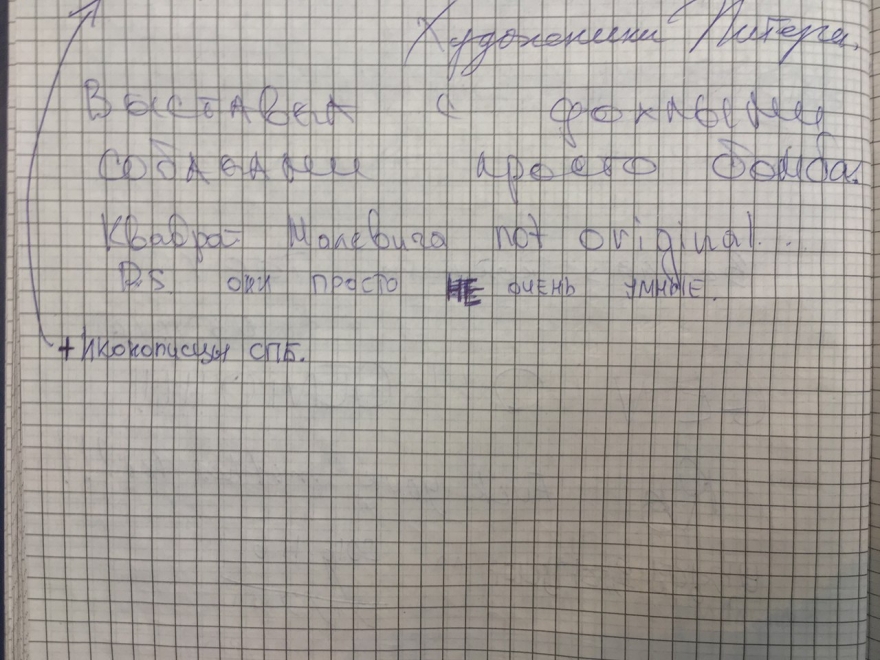 Художники Питера.
Выставка с дохлыми
собаками просто бомба.
Квадрат Малевича not original...
P.S они просто НЕ очень умные.
+ Иконописцы СПБ.